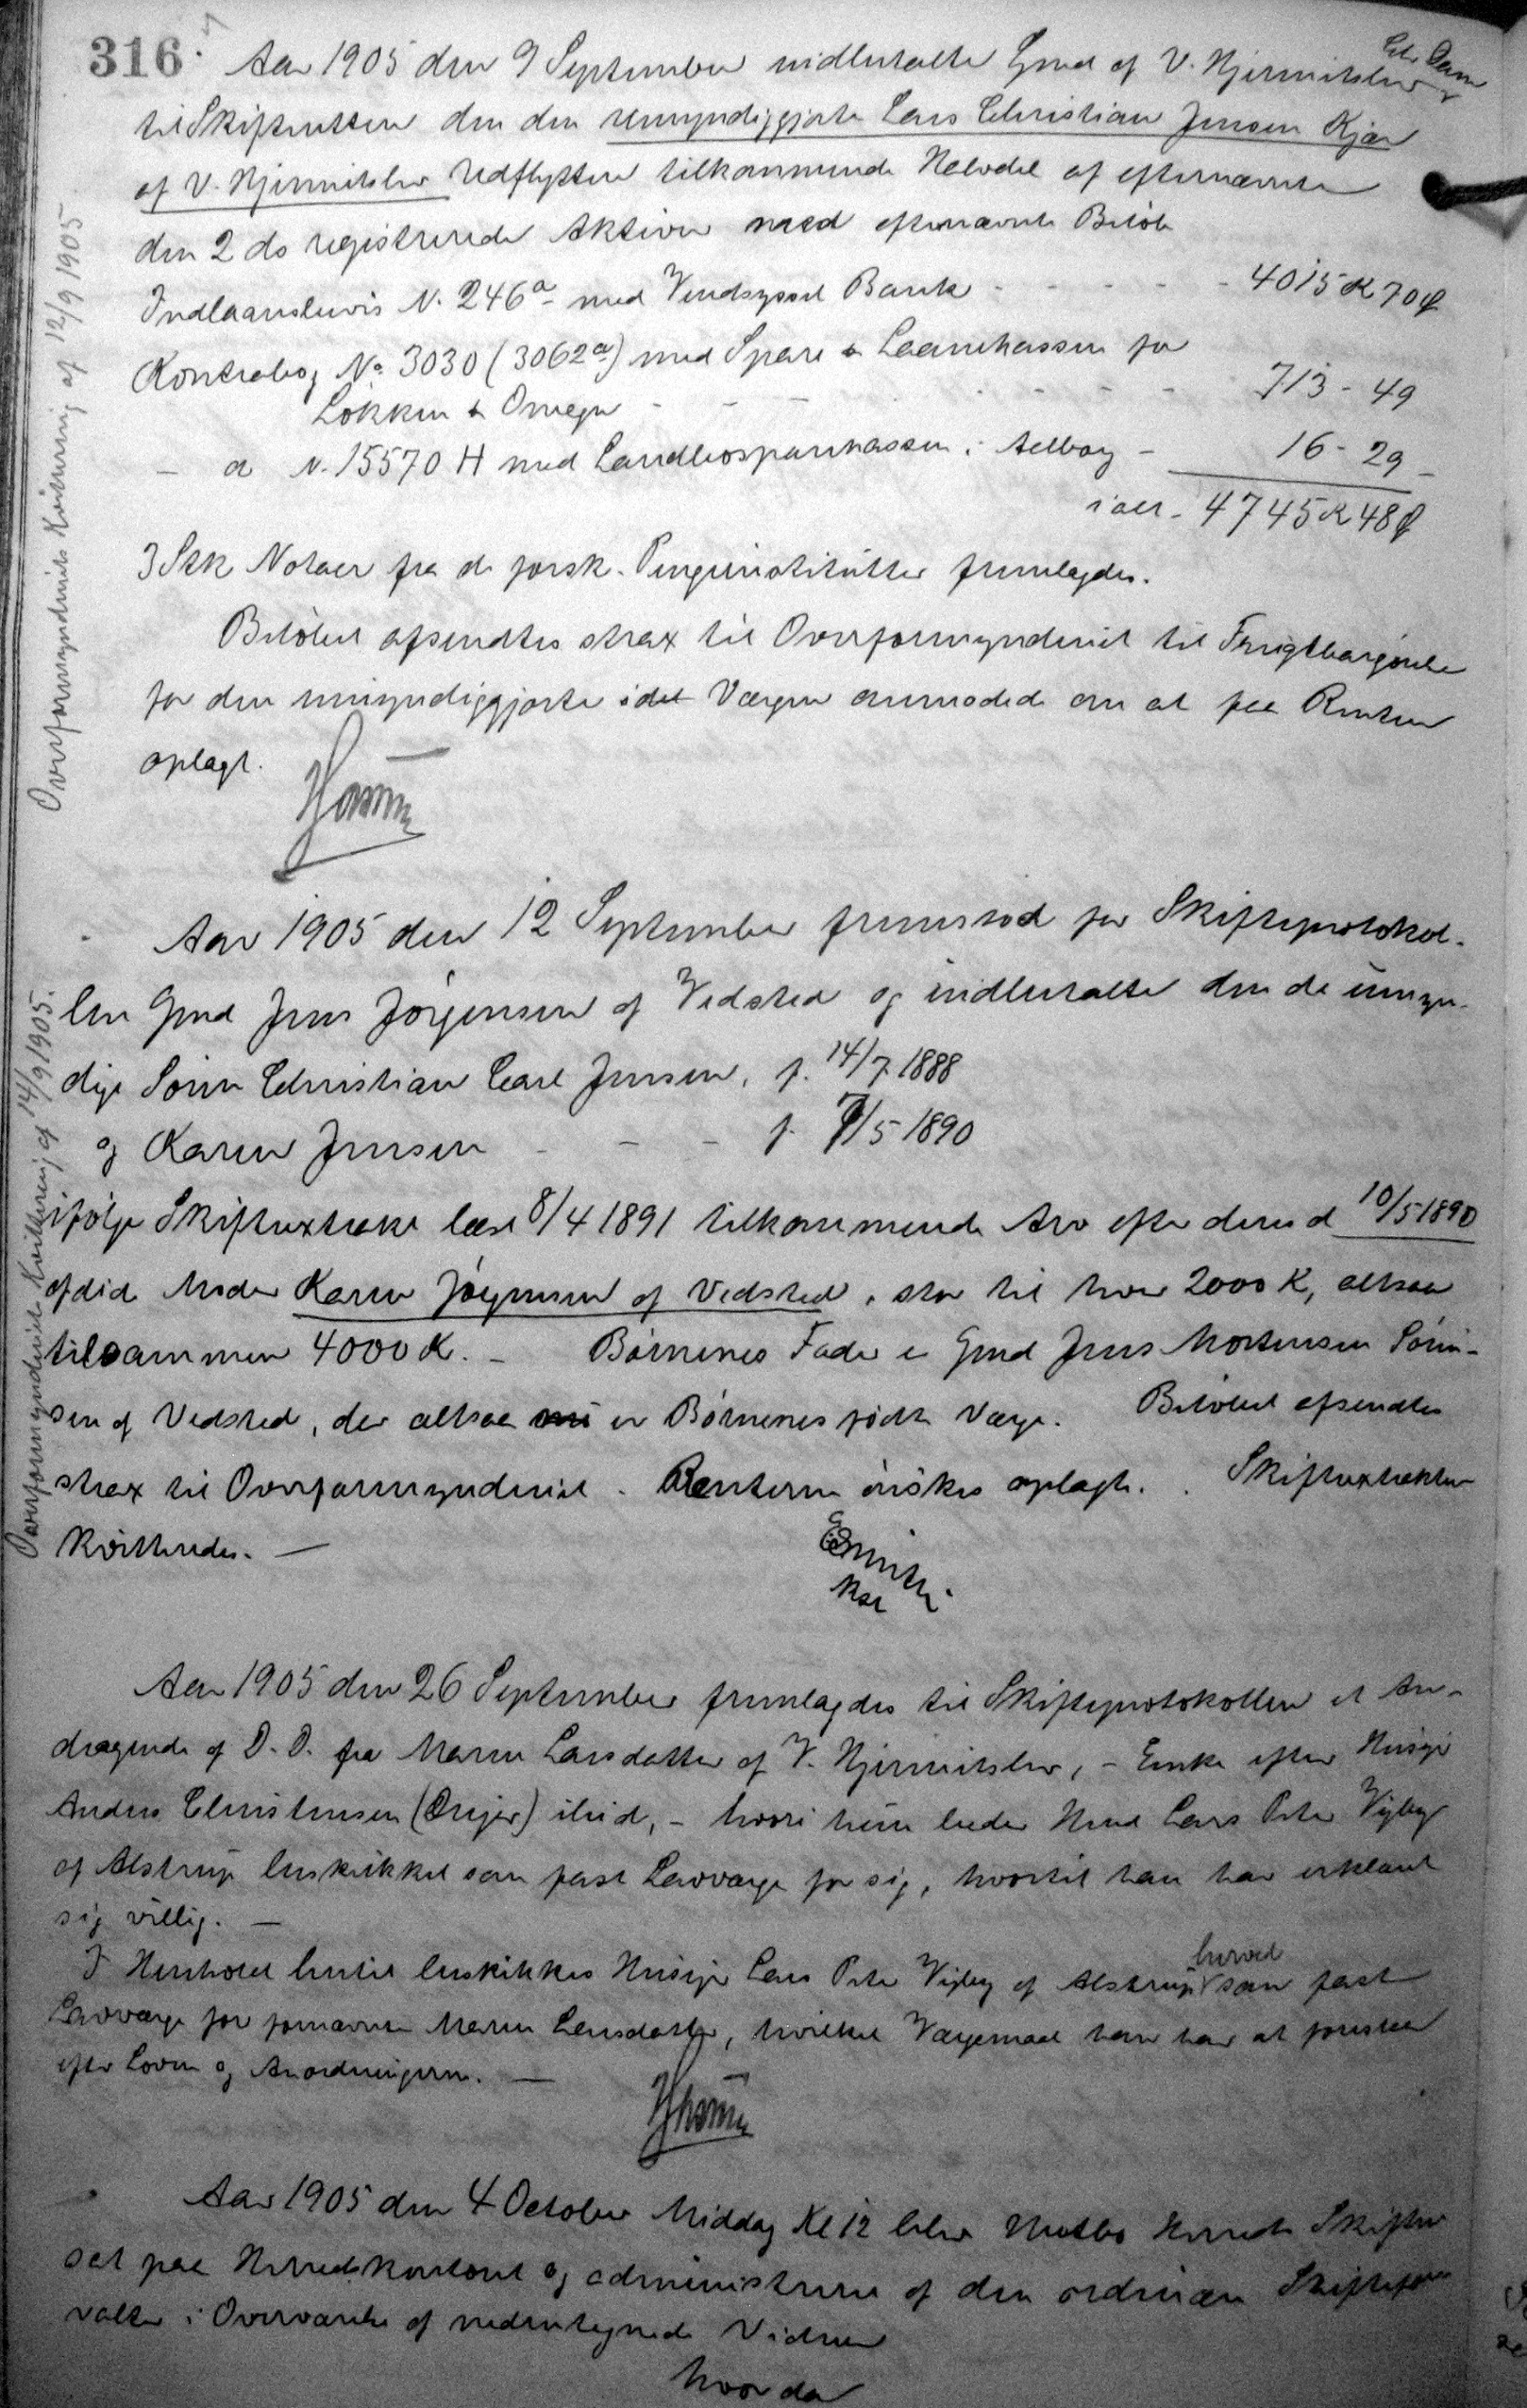 316.
Aar 1905 den 9 September indbetalte Gmd af V. Hjermitslev
til Skifteretten den den umyndiggjorte Lars Christian Jensen Kjær
af V. Hjermitslev Udflyttere tilkommende Halvdel af efternævnte
den 2 ds registrerede Aktiver med efternævnte Beløb
Indlaansbevis N. 246a med Vendsyssel Bank - - - - 4015 K 70 Ø
Kontrabog No. 3030 (3062a) med Spare & Laanekassen for
Løkken & Omegn - - - - - - 713 - 49
- d N. 15570 H med Landbosparekassen i Aalborg - 16 - 29 -
ialt - 4745 K 48 Ø
3 Stk Notaer fra de forsk. Pengeinstitutter fremlagdes.
Beløbet afsendtes strax til Overformynderiet til Frugtbargørelse
for den umyndiggjorte idet Værgen anmodede om at faa Renten
oplagt.
Overformynderiets Kvittering af 12/9 1905
Aar 1905 den 12 September fremstod for Skifteprotokol-
len Gmd Jens Jörgensen af Vedsted og indbetalte den de umyn-
dige Sörin Christian Carl Jensen, f. 14/7 1888
og Karen Jensen - - f. 7/5 1890
ifölge Skifteextrakt læst 8/4 1891 tilkommende Arv efter deres d 10/5 1890
afdöde Moder Karen Jörgensen af Vedsted, stor til hver 2000 K, altsaa
tilsammen 4000 K. - Börnenes Fader er Gmd Jens Mortensen Sörin-
sen af Vedsted, der altsaa er Börnenes födte Værge. Beløbet afsendtes
strax til Overformynderiet. Renterne önskes oplagte. Skifteextrakten
kvitteredes. -
Overformynderiets Kvittering af 14/9 1905.
Aar 1905 den 26 September fremlagdes til Skifteprotokollen et An-
dragende af D.D. fra Maren Larsdatter af V. Hjermitslev, - Enke efter Husejer
Anders Christensen (Krejer) ibid, - hvori hun beder Hmd Lars Peter Vejby
af Alstrup beskikket som fast Lavværge for sig, hvortil han har erklæret
sig villig. -
I Henhold hertil beskikkes Husejer Lars Peter Vejby af Alstrup herved som fast
Lavværge for fornævnte Maren Larsdatter, hvilket Værgemaal han har at forestaa
efter Loven og Anordningerne. -
Aar 1905 den 4 October Middag Kl 12 blev Hvetbo Herreds Skifteret
sat paa Herredskontoret og administreret af den ordinære Skiftefor-
valter i Overværelse af nedentegnede Vidner
hvor da